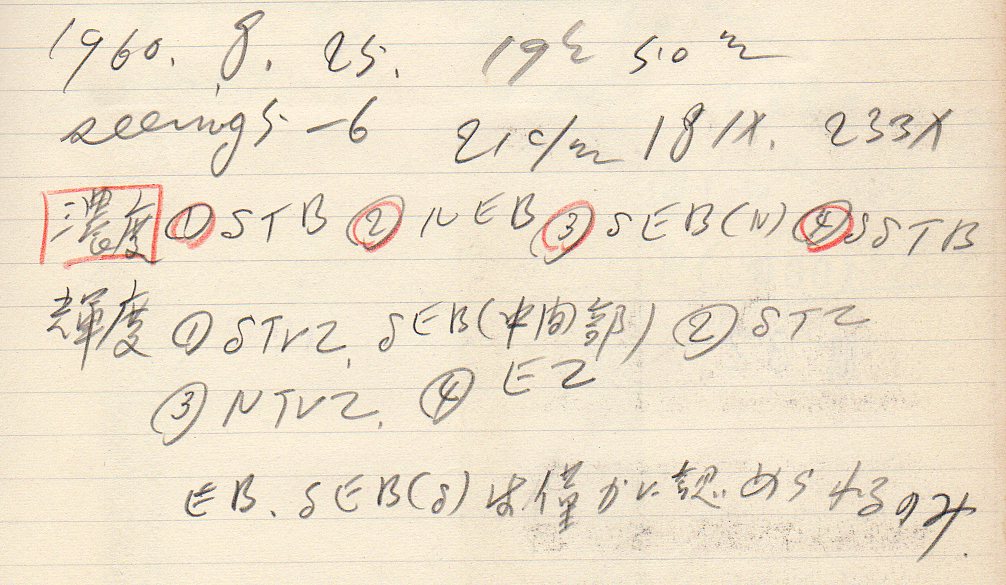 1960. 8. 25. 19h 50m
seeing 5-6 21c/m 181X. 233X
濃度 ① STB ② NEB ③ SEB(N) ④ SSTB
輝度 ① STrZ, SEB(中間部) ② STZ
③ NTrZ, ④ EZ
EB、SEB(S)は僅かに認められるのみ.